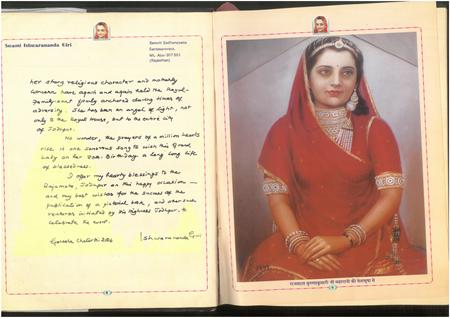 Swami Ishwarananda Giri
Samvit Sadhanayana
Santsarovara,
Mt. Abu-307 501
(Rajasthan)
her strong religious character and motherly
concern have again and again held the Royal
family-cart firmly anchored during times of
adversity. She has been an angel of light, not
only to the Royal House, but to the entire city
of Jodhpur.
No wonder, the prayers of a million hearts
rise in one sonorous song to wish this Grand
Lady on her 80th Birthday a long long life
of blessedness.
I offer my hearty blessings to the
Rajamata, Jodhpur on this happy occasion —
and my best wishes for the success of the
publication of a pictorial book, and other such
ventures initiated by His Highness Jodhpur, to
celebrate the event.
Ganesha Chaturthi 2006
Ishwarananda Giri
राजमाता कृष्णाकुमारी जी महारानी की वेशभूषा में